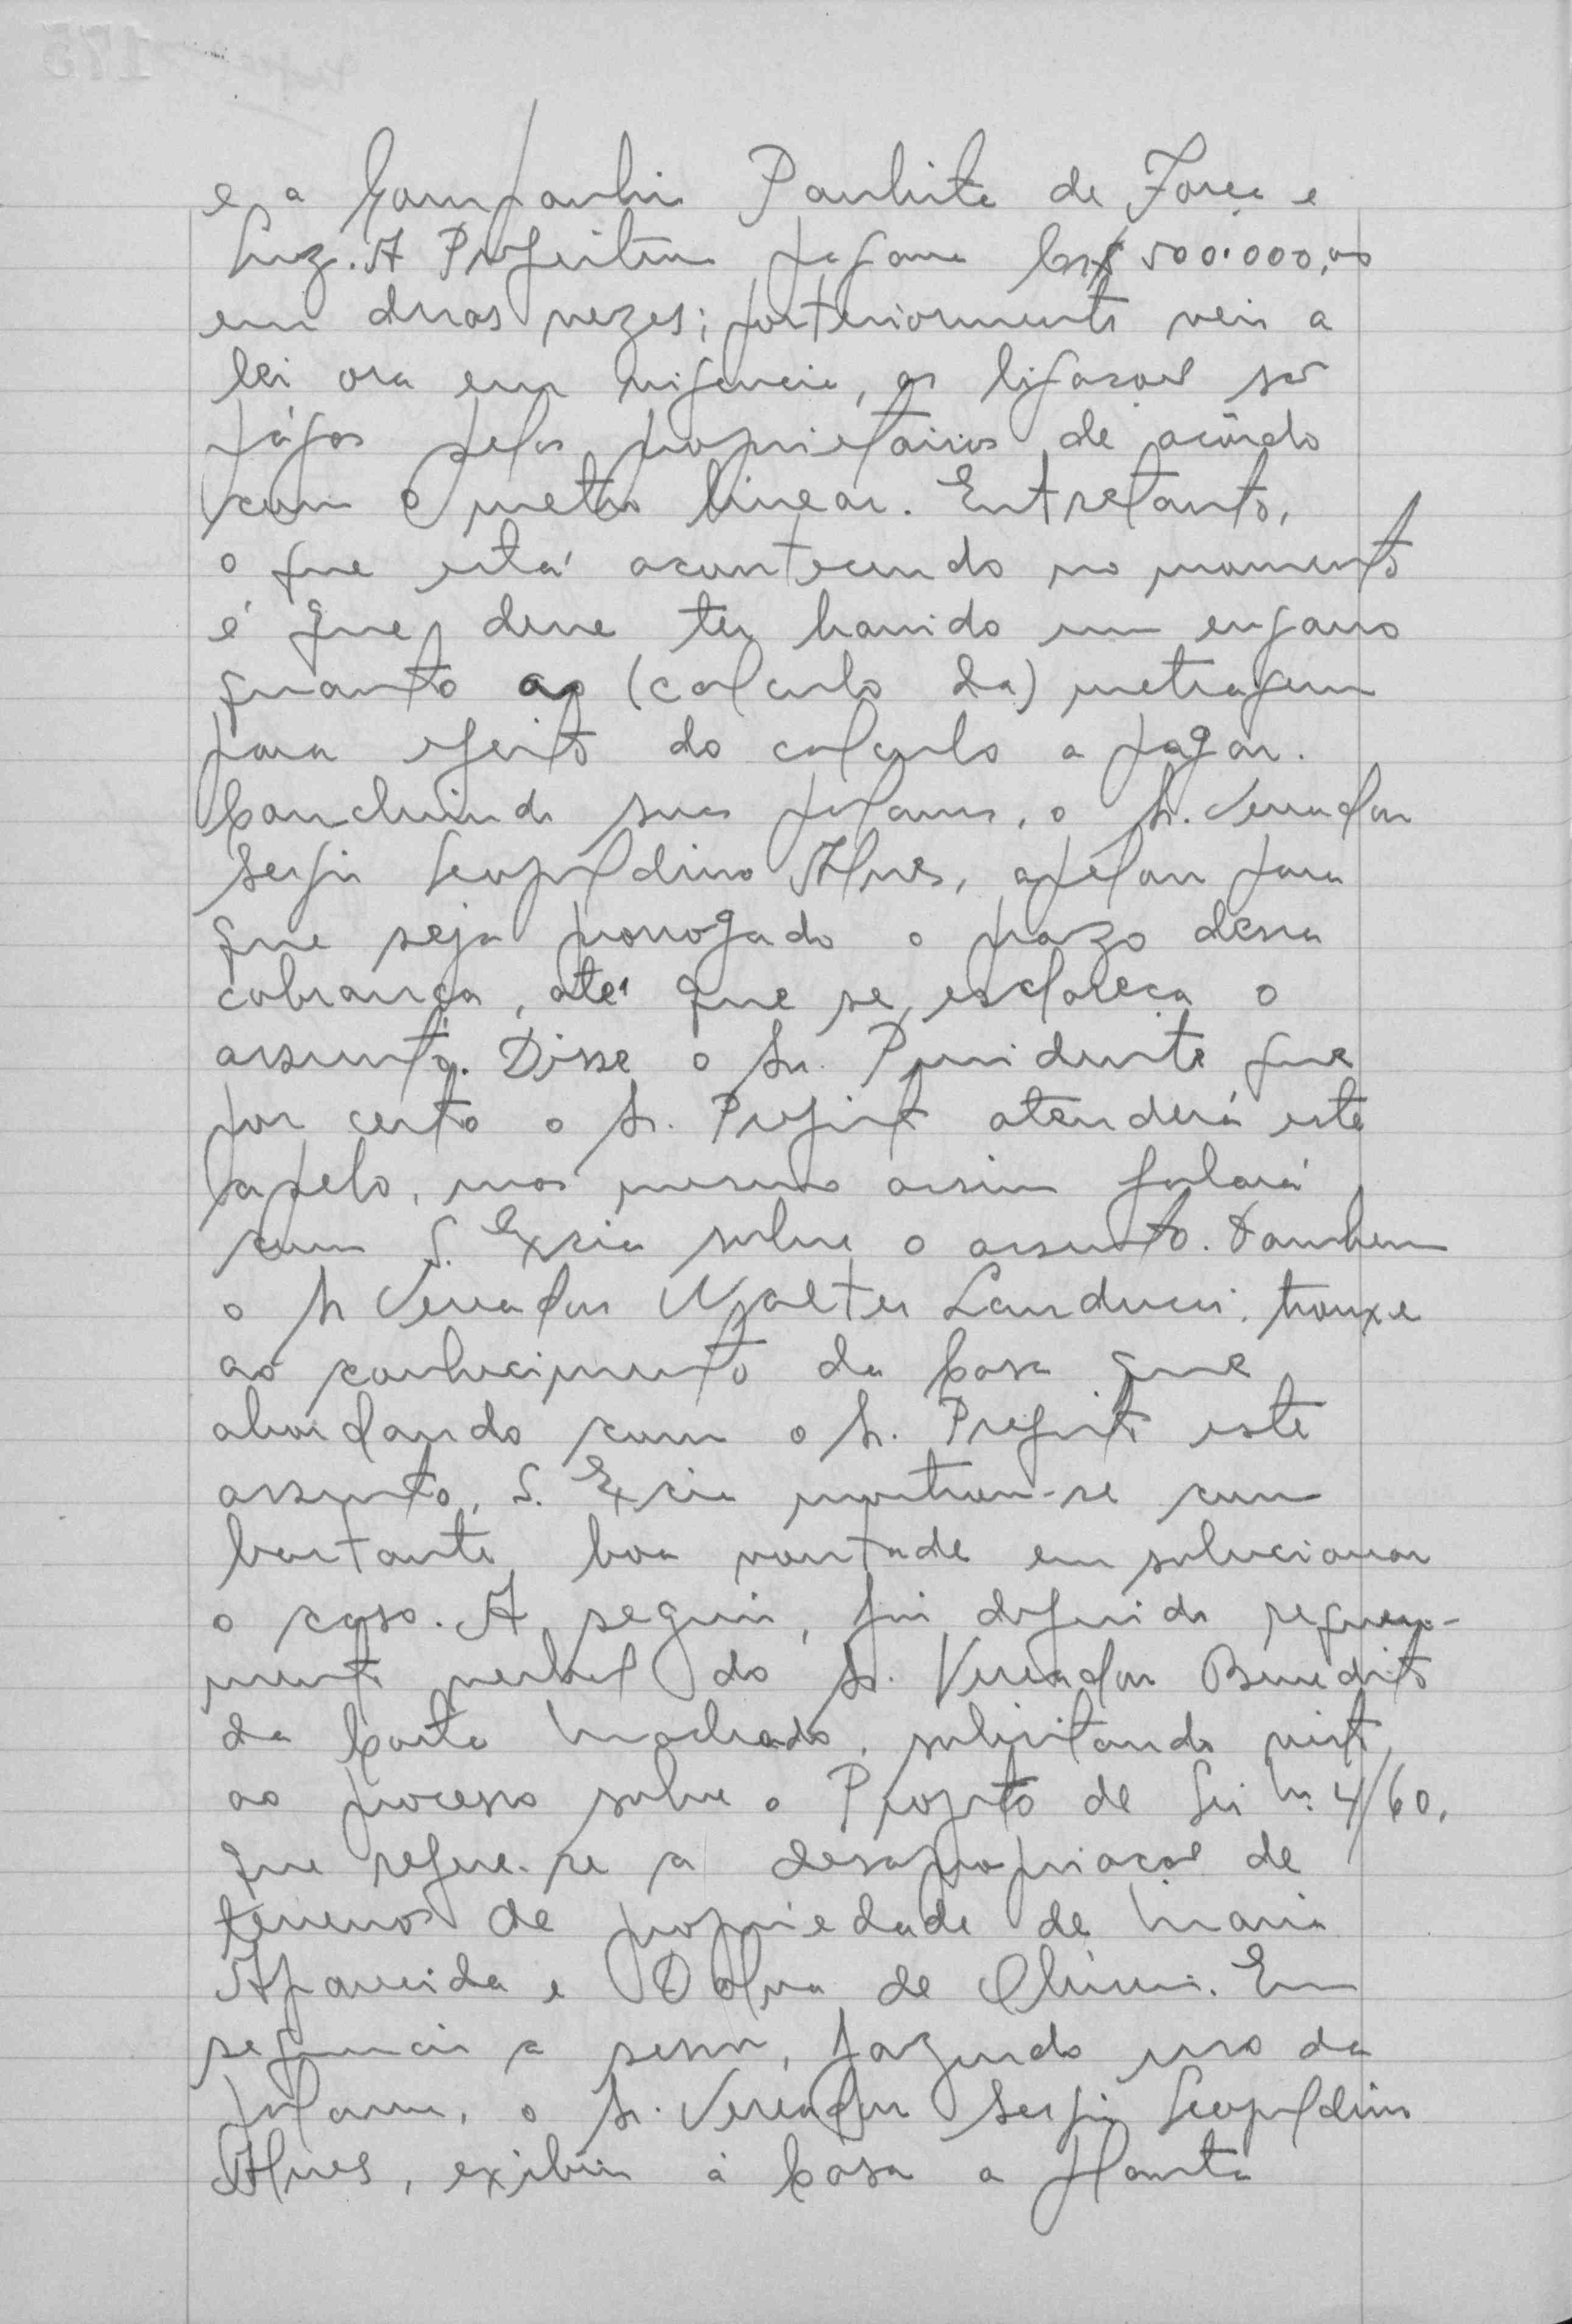 e a Companhia Paulista de Força e
Luz. A Prefeitura pagava Cr$ 500.000,00
em duas vezes; posteriormente veiu a
lei ora em vigencia, as ligações são
págas pelos proprietarios de acôrdo
com o metro linear. Entretanto,
o que está acontecendo no momento
é que deve ter havido um engano
quanto ao (calculo da) metragem
para efeito do calculo a pagar.
Concluindo sua palavra, o Sr. Vereador
Sergio Leopoldino Alves, apelou para
que seja prorrogado o prazo dessa
cobrança, até que se esclareça o
assunto. Disse o Sr. Presidente que
por certo o Sr. Prefeito atenderá este
apelo, mas mesmo assim falará
com S. Excia sobre o assunto. Tambem
o Sr Vereador Walter Landucci, trouxe
ao conhecimento da Casa que
abordando com o Sr. Prefeito este
assunto, S. Excia mostrou-se com
bastante boa vontade em solucionar
o caso. A seguir, foi deferido requeri-
mento verbal do Sr. Vereador Benedito
da Costa Machado, solicitando vista
ao processo sobre o Projeto de Lei n. 4/60,
que refere-se a desapropriação de
terrenos de propriedade de Maria
Aparecida e Dalva de Chirin. Em
sequencia a sessão, fazendo uso da
palavra, o Sr. Vereador Sergio Leopoldino
Alves, exibiu á Casa a planta